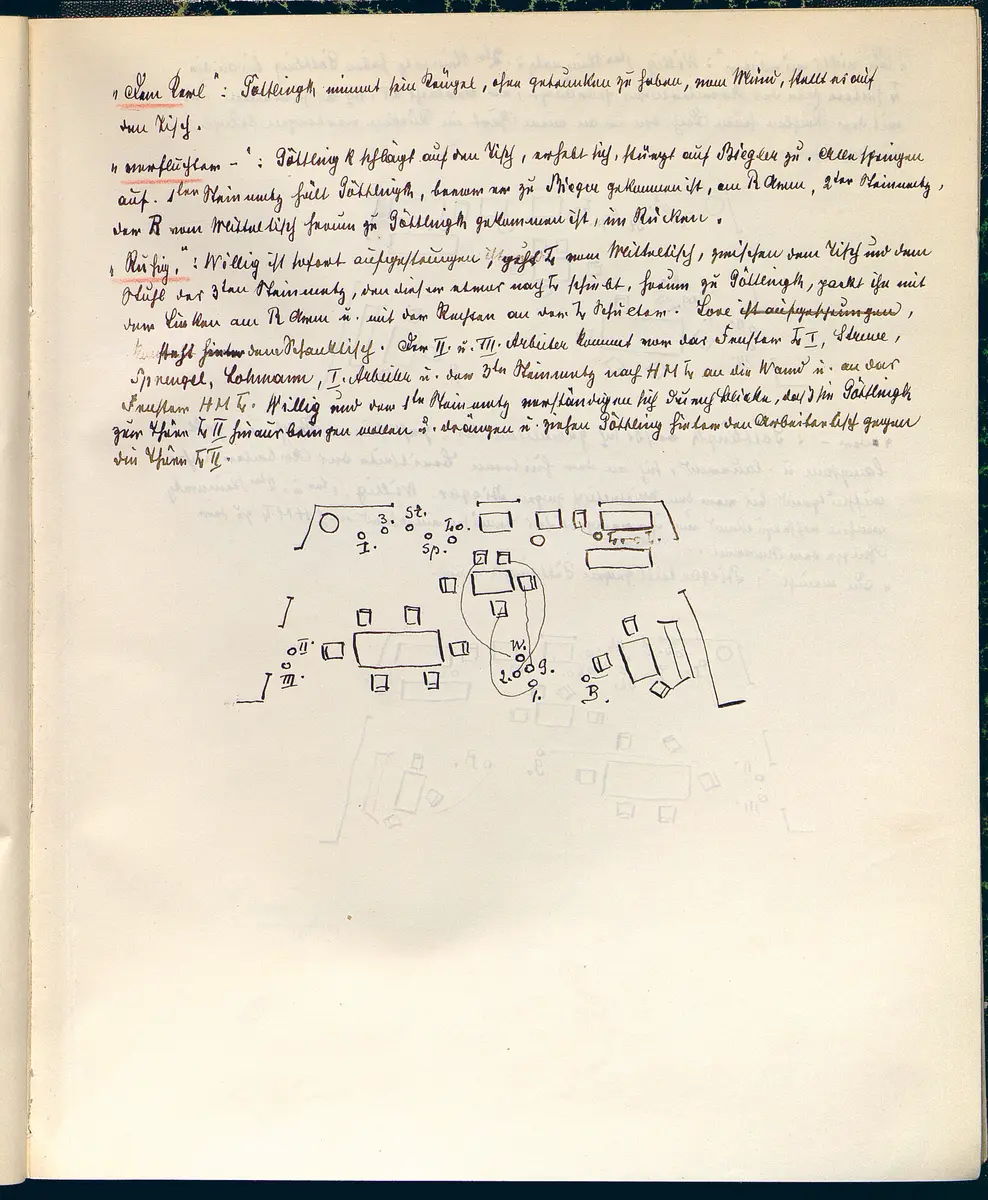 „Dem Kerl“: Göttlingk nimmt sein Krügel, ohne getrunken zu haben, vom Mund, stellt es auf
den Tisch.
„verfluchten –“: Göttlingk schlägt auf den Tisch, erhebt sich, stürzt auf Biegler zu. Alle springen
auf. 1ter Steinmetz hält Göttlingk, bevor er zu Biegler gekommen ist, am R Arm, 2ter Steinmetz,
der R vom Mitteltisch herum zu Göttlingk gekommen ist, im Rücken.
„Ruhig,“: Willig ist sofort aufgesprungen, geht L vom Mitteltisch, zwischen dem Tisch und dem
Stuhl des 3ten Steinmetz, den dieser etwas nach L schiebt, herum zu Göttlingk, packt ihn mit
der Linken am R Arm u. mit der Rechten an der L Schulter. Lore ist aufgesprungen,
steht hinter dem Schanktisch. Der II. u. III. Arbeiter kommt vor das Fenster L I, Strewe,
Sprengel, Lohmann, I. Arbeiter u. der 3te Steinmetz nach H M L an die Wand u. an das
Fenster H M L. Willig und der 1te Steinmetz verständigen sich durch Blicke, daß sie Göttlingk
zur Thüre L II hinausbringen wollen u. drängen u. ziehen Göttling hinter den Arbeitertisch gegen
die Thüre L II.
3. St. Lo.
I. Sp. Lore
W.
II. 2. G.
III. 1. B.